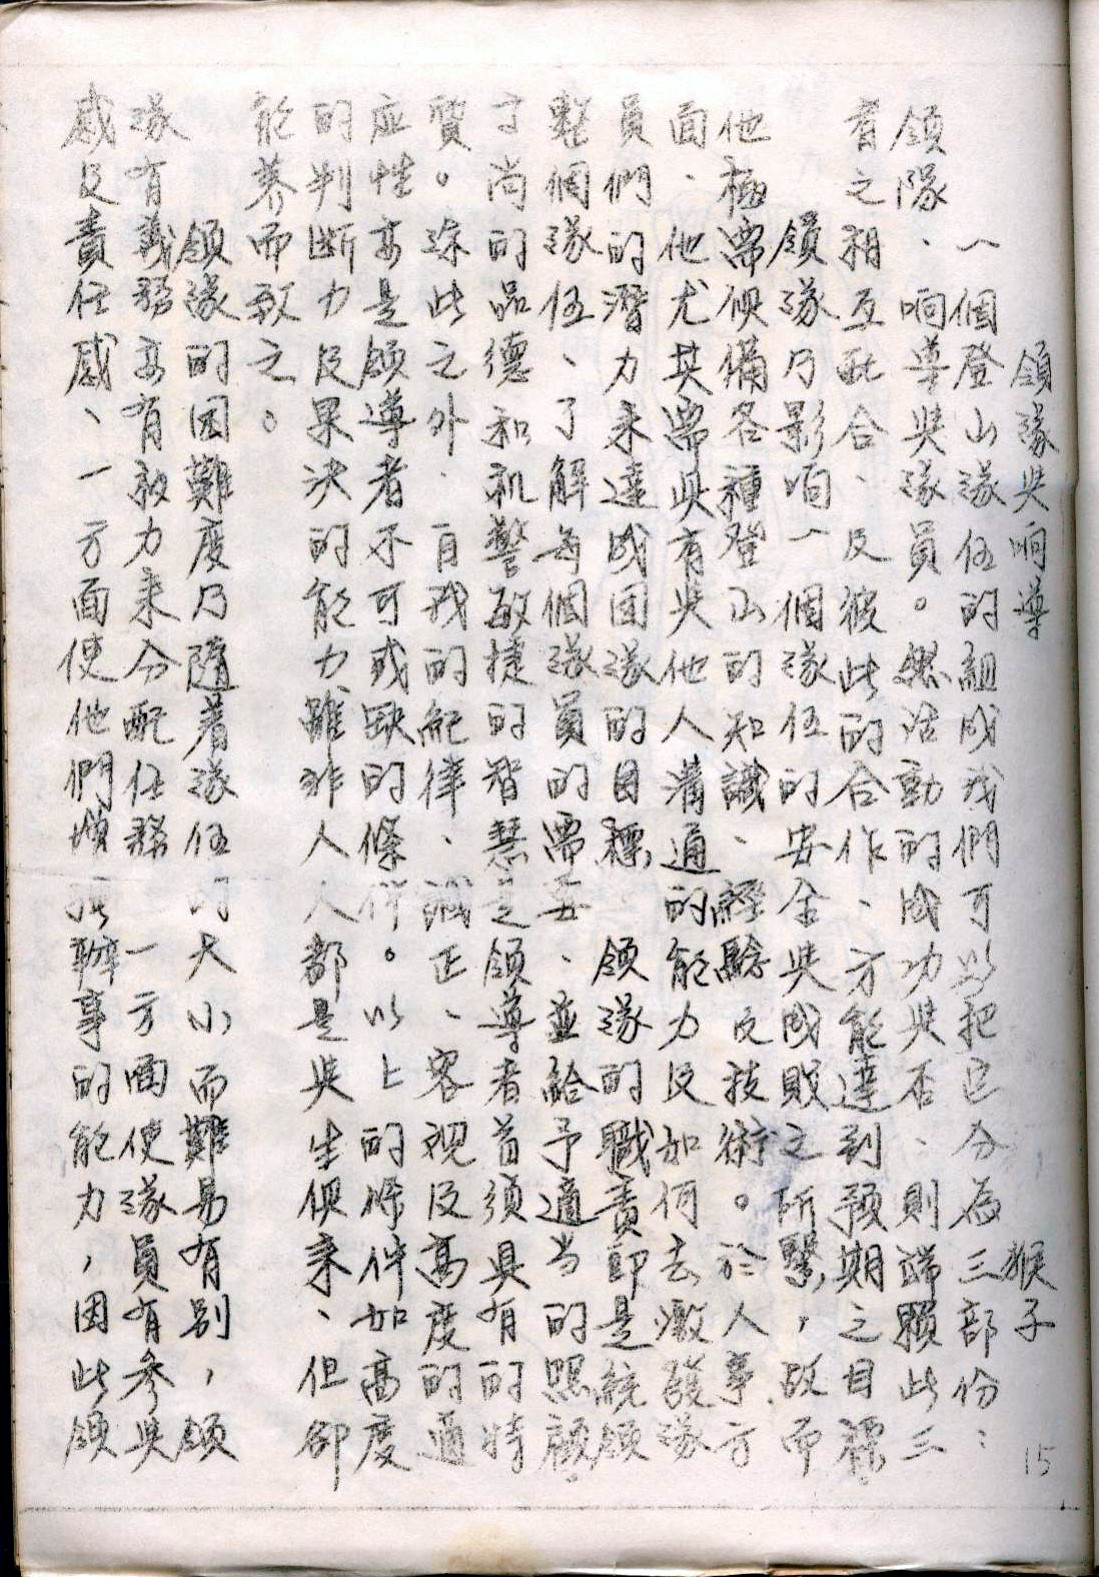 領隊與响導　猴子
一個登山隊伍的組成我們可以把它分為三部份：
領隊、响導與隊員。然活動的成功與否、則端賴此三
者之相互配合、及彼此的合作、方能達到預期之目標。
領隊乃影响一個隊伍的安全與成敗之所繫，故而
他極需俱備各種登山的知識、經驗及技術。於人事方
面、他尤其需與有與他人溝通的能力及如何去激發隊
員們的潛力來達成團隊的目標　領隊的職責即是統領
整個隊伍、了解每個隊員的需要、並給予適当的照顧。
高尚的品德和机警敏捷的智慧是領導者首須具有的特
質。除此之外．自我的紀律、誠正、客视及高度的適
应性亦是領導者不可或缺的條件。以上的條件如高度
的判断力及果決的能力雖非人人都是與生俱來、但卻
能养而致之。
領隊的困難度乃隨着隊伍的大小而難易有别，領
隊有義務亦有效力来分配任務　一方面使隊員有參與
感及責任感、一方面使他們增強辦事的能力，因此領
15